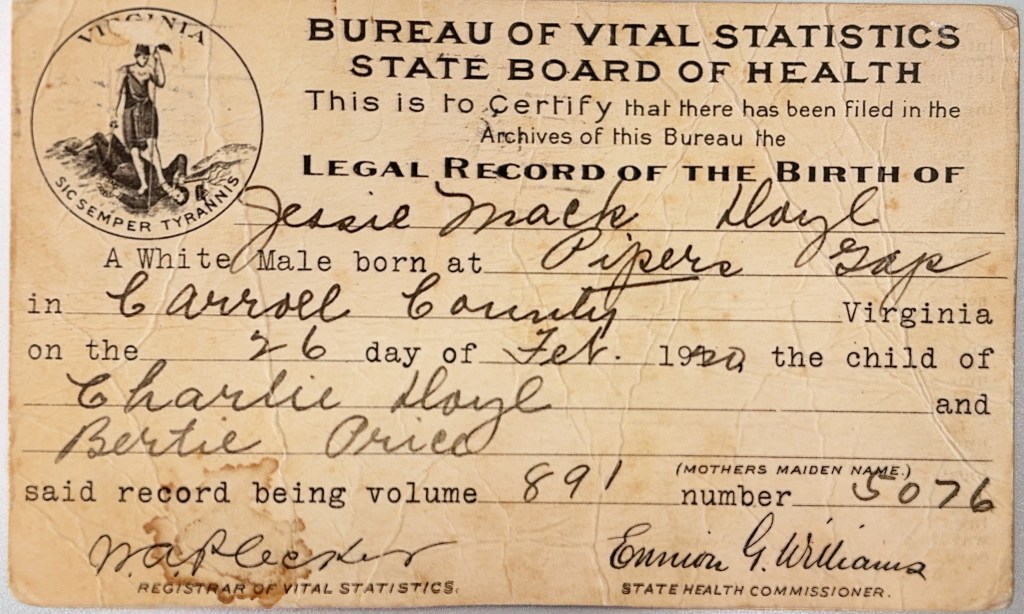 VIRGINIA
SIC SEMPER TYRANNIS
BUREAU OF VITAL STATISTICS
STATE BOARD OF HEALTH
This is to Certify that there has been filed in the
Archives of this Bureau the
LEGAL RECORD OF THE BIRTH OF
Jessie Mack
A White Male born at Pipers Gap
in Carroll County Virginia
on the 26 day of Feb. 1920 the child of
Charlie and
Bertie Price
(MOTHERS MAIDEN NAME.)
said record being volume 891 number 5076
W.A. Plecker Ennion G. Williams
REGISTRAR OF VITAL STATISTICS. STATE HEALTH COMMISSIONER.